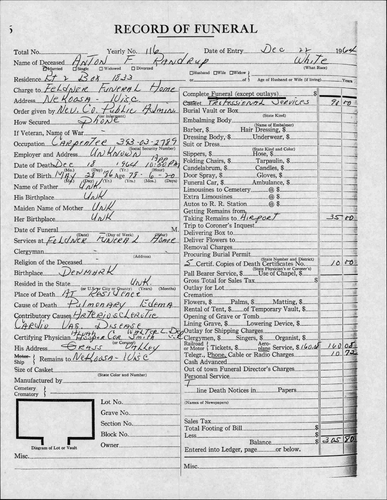 RECORD OF FUNERAL
Total No. Yearly No. 116 Date of Entry Dec 22 1964
Name of Deceased ANTON F PANDRUP White
(What Race)
Married Single Widowed Divorced
Husband Wife Widow of Age of Husband or Wife (if living) Years
Residence Rt 2 Box 1833
Charge to FELDNER FUNERAL HOME
Address NEKOOSA - WISC
Order given by NEV. CO. Public Admin.
How Secured Phone
If Veteran, Name of War
Occupation CARPENTER 393-03-2789
(Social Security Number)
Employer and Address UNKNOWN
Date of Death DEC 18 1964 10:50 PM
Date of Birth MAY 28 86 Age 78-6-20
Name of Father UNK
His Birthplace UNK
Maiden Name of Mother UNK
Her Birthplace UNK
Date of Funeral M.
Services at FELDNER FUNERAL HOME
(Address)
Clergyman
Religion of the Deceased
Birthplace DENMARK
Resided in the State UNK.
Place of Death AT RESIDENCE
Cause of Death PULMONARY EDEMA
Contributory Causes ARTERIOSCLEROTIC
CARDIO VAS. DISEASE
Certifying Physician
His Address GRASS VALLEY
Remains to NEKOOSA - WISC
Motor Ship
Size of Casket
(State Color and Number)
Manufactured by
Cemetery
Crematory
Lot No.
Grave No.
Section No.
Block No.
Owner
Diagram of Lot or Vault
Misc.
Complete Funeral (except outlays) $
Casket PROFESSIONAL SERVICES
Burial Vault or Box
(State Kind)
Embalming Body
(Name of Embalmer)
Barber, $ Hair Dressing, $
Dressing Body, $ Underwear, $
Suit or Dress
(State Kind and Color)
Slippers, $ Hose, $
Folding Chairs, $ Tarpaulin, $
Candelabrum, $ Candles, $
Door Spray, $ Gloves, $
Funeral Car, $ Ambulance, $
Limousines to Cemetery @ $
Extra Limousines @ $
Autos to R. R. Station @ $
Getting Remains from
Taking Remains to AIRPORT 35 00
Trip to Coroner's Inquest
Delivering Box to
Deliver Flowers to
Removal Charges
Procuring Burial Permit
(State Number and District)
5 Certif. Copies of Death Certificates No. 10 00
(State Physician's or Coroner's)
Pall Bearer Service, $ Use of Chapel, $
Gross Total for Sales Tax $
Outlay for Lot
Cremation
Flowers, $ Palms, $ Matting, $
Rental of Tent, $ of Temporary Vault, $
Opening of Grave or Tomb
Lining Grave, $ Lowering Device, $
Outlay for Shipping Charges
Clergymen, $ Singers, $ Organist, $
Railroad or Motor Tickets, $ Aeroplane Service, $ 160.08 160 08
Telegr., Phone, Cable or Radio Charges 10 72
Cash Advanced
Out of town Funeral Director's Charges
Personal Service
line Death Notices in Papers
Sales Tax
Total Footing of Bill $
Less
Balance $ 305 80
Entered into Ledger, page or below.
Misc.